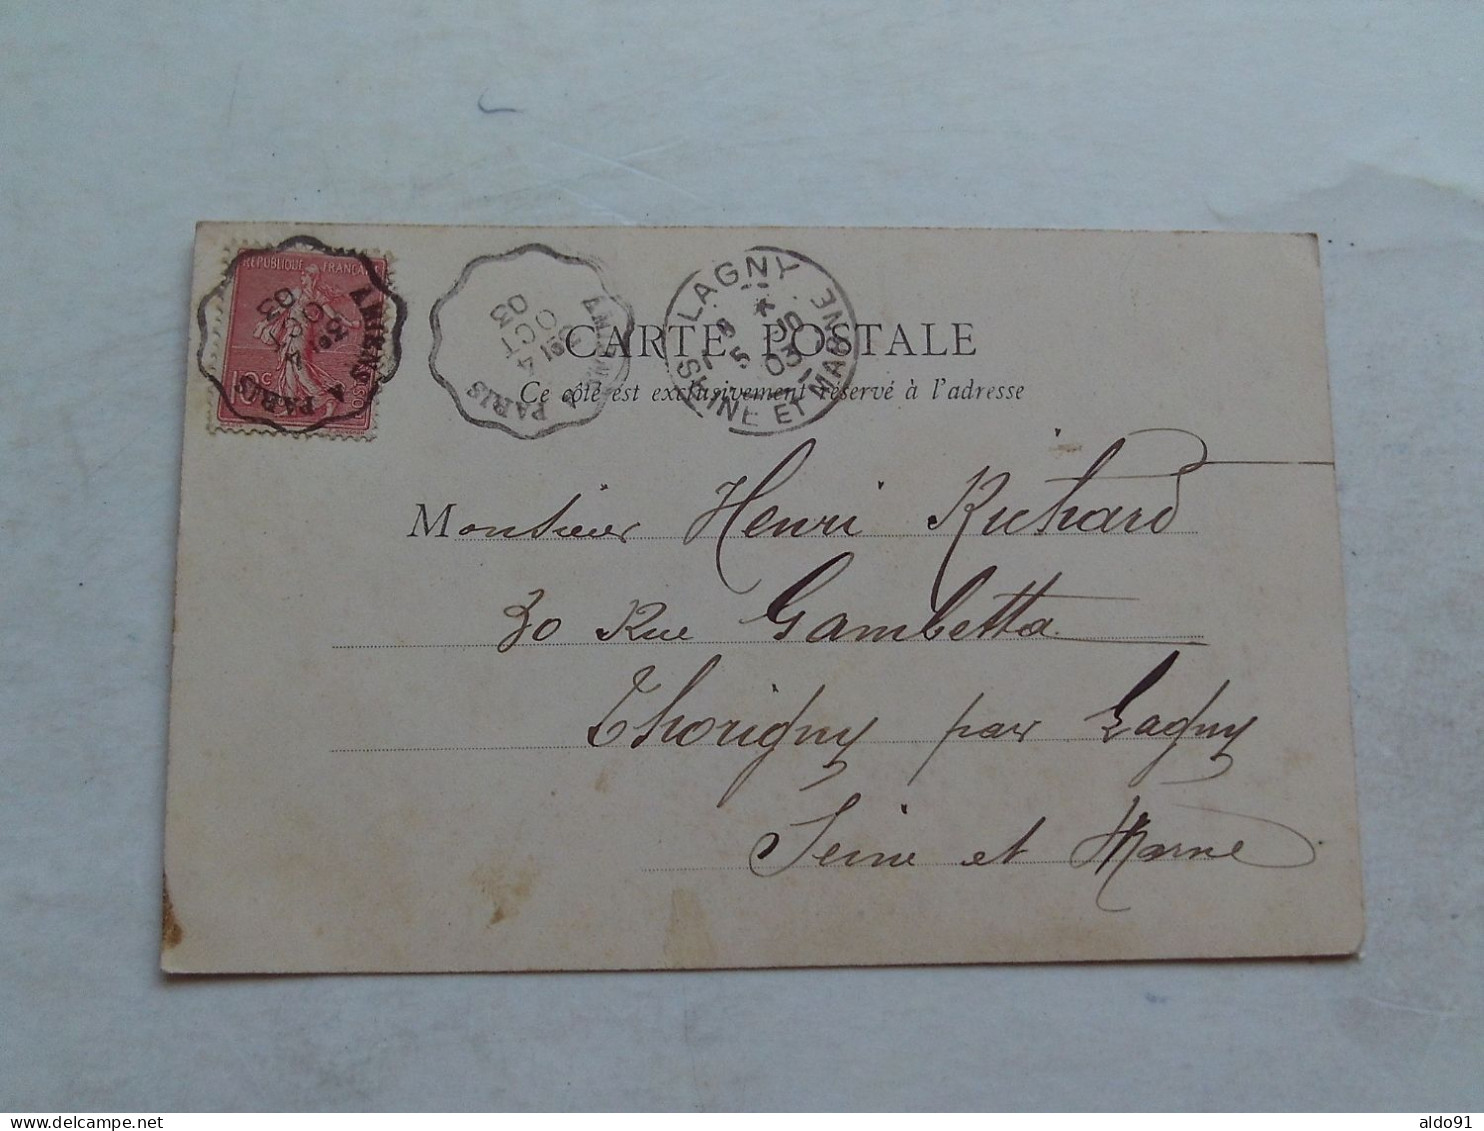 REPUBLIQUE FRANÇAISE
10 c
POSTES
AMIENS A PARIS
3e
4
OCT
03
AMIENS A PARIS
4
OCT
03
LAGNY
5
03
SEINE ET MARNE
CARTE POSTALE
Ce côté est exclusivement réservé à l'adresse
Monsieur Henri Richard
30 Rue Gambetta
Thorigny par Lagny
Seine et Marne
aldo91